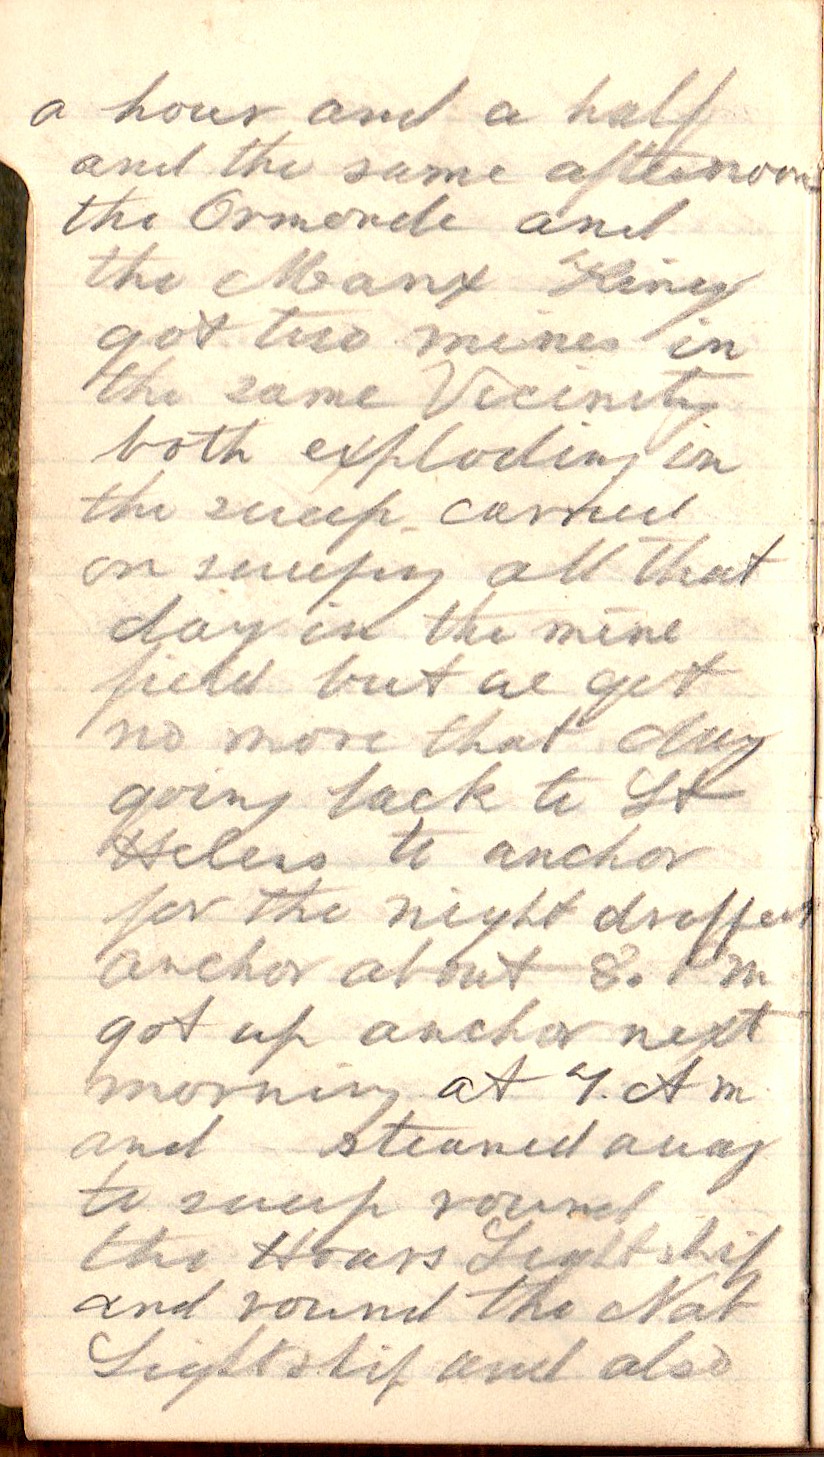 a hour and a half
and the same afternoon
the Ormonde and
the Manx King
got two mines in
the same Vicinity
both exploding in
the sweep carried
on sweeping all that
day in the mine
field but we got
no more that day
going back to St
Helens to anchor
for the night dropped
anchor about 8. P m
got up anchor next
morning at 7. A m
and steamed away
to sweep round
the Hoars Lightship
and round the Nab
Lightship and also